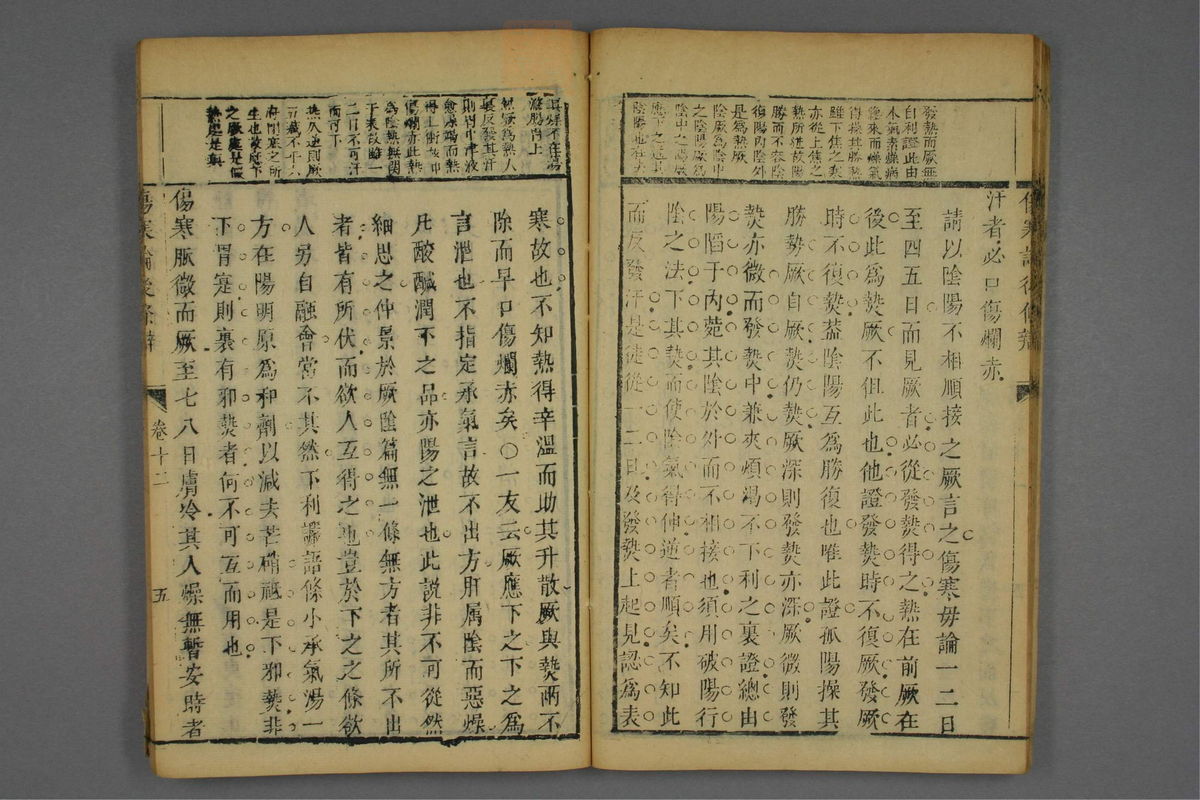 發熱而厥無
自利證此由
本氣素燥病
雖下焦之寒
亦從上焦之
熱所逆故陽
勝而不容陰
復陽內陰外
是為熱厥
陰厥為陰中
之陰陽厥為
陰中之陽厥
汗者必口傷爛赤
請以陰陽不相順接之厥言之傷寒毋論一二日
至四五日而見厥者必從發熱得之熱在前厥在
後此為熱厥不但此也他證發熱時不復厥發厥
時不復熱葢陰陽互為勝復也唯此證孤陽操其
勝勢厥自厥熱仍熱厥深則發熱亦深厥微則發
熱亦微而發熱中兼夾煩渴不下利之裏證總由
陽陷于內菀其陰於外而不相接也須用破陽行
陰之法下其熱而使陰氣得伸逆者順矣不知此
而反發汗是徒從一二日及發熱上起見認為表
傷寒論後條辨
然厥為熱入
裏反發其汗
則胃中津液
愈燥竭而熱
得上衝故口
傷爛赤此熱
為陰熱無關
于表故雖一
二日不可汗
而可下
生也故厥下
之厥處是假
熱處是真
寒故也不知熱得辛溫而助其升散厥與熱兩不
除而早口傷爛赤矣○一友云厥應下之下之為
言泄也不指定承氣言故不出方肝屬陰而惡燥
凡酸鹹潤下之品亦陽之泄也此說非不可從然
細思之仲景於厥陰篇無一條無方者其所不出
者皆有所伏而欲人互得之也豈於下之之條欲
人另自融會當不其然下利譫語條小承氣湯一
方在陽明原為和劑以減去芒硝祗是下邪熱非
下胃寔則裏有邪熱者何不可互而用也
傷寒脈微而厥至七八日膚冷其人燥無暫安時者
傷寒論後條辨
卷十二
五